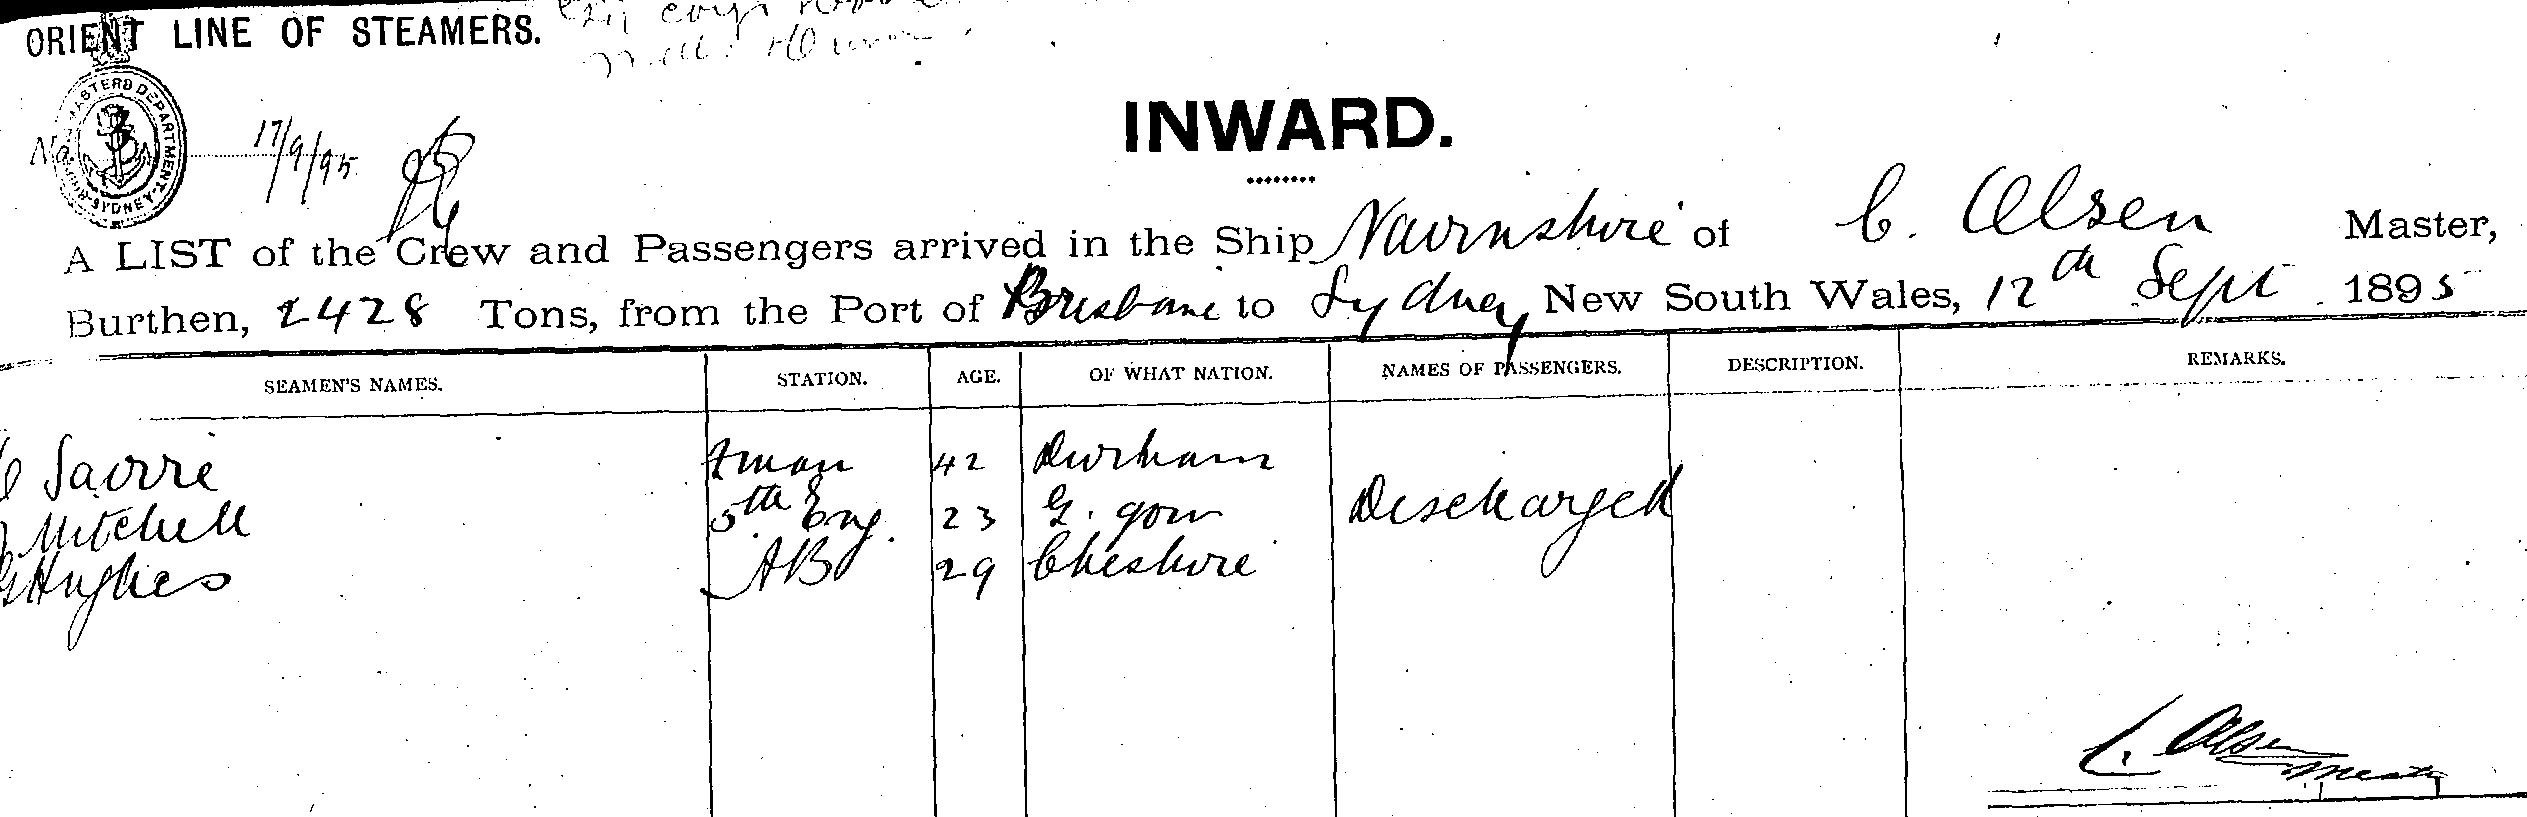 ORIENT LINE OF STEAMERS.
MASTERS DEPARTMENT SYDNEY
No. 17/9/95
INWARD.
A LIST of the Crew and Passengers arrived in the Ship Nairnshire of C. Olsen Master,
Burthen, 2428 Tons, from the Port of Brisbane to Sydney, New South Wales, 12th Sept 1895
SEAMEN'S NAMES. STATION. AGE. OF WHAT NATION. NAMES OF PASSENGERS. DESCRIPTION. REMARKS.
Fman 42 Durham
Mitchell 5th Eng. 23 G. gow Discharged
Hughes AB 29 Cheshire
C. Olsen
Master